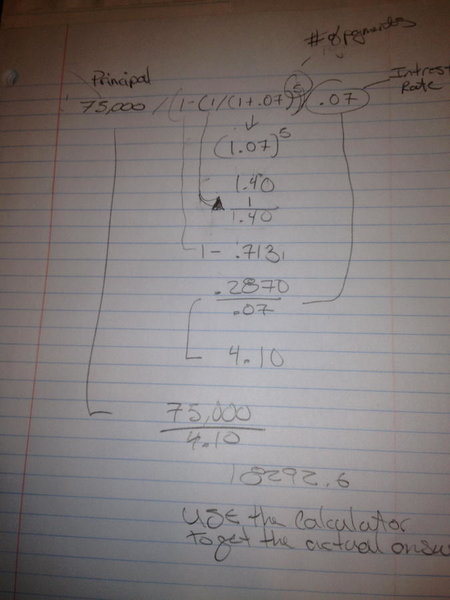 # of payments
Principal
Intrest
Rate
75,000 / (1-(1/(1+.07)^5)/.07
(1.07)^5
1.40
1
1.40
1 - .713
.2870
.07
4.10
75,000
4.10
18292.6
use the calculator
to get the actual answ